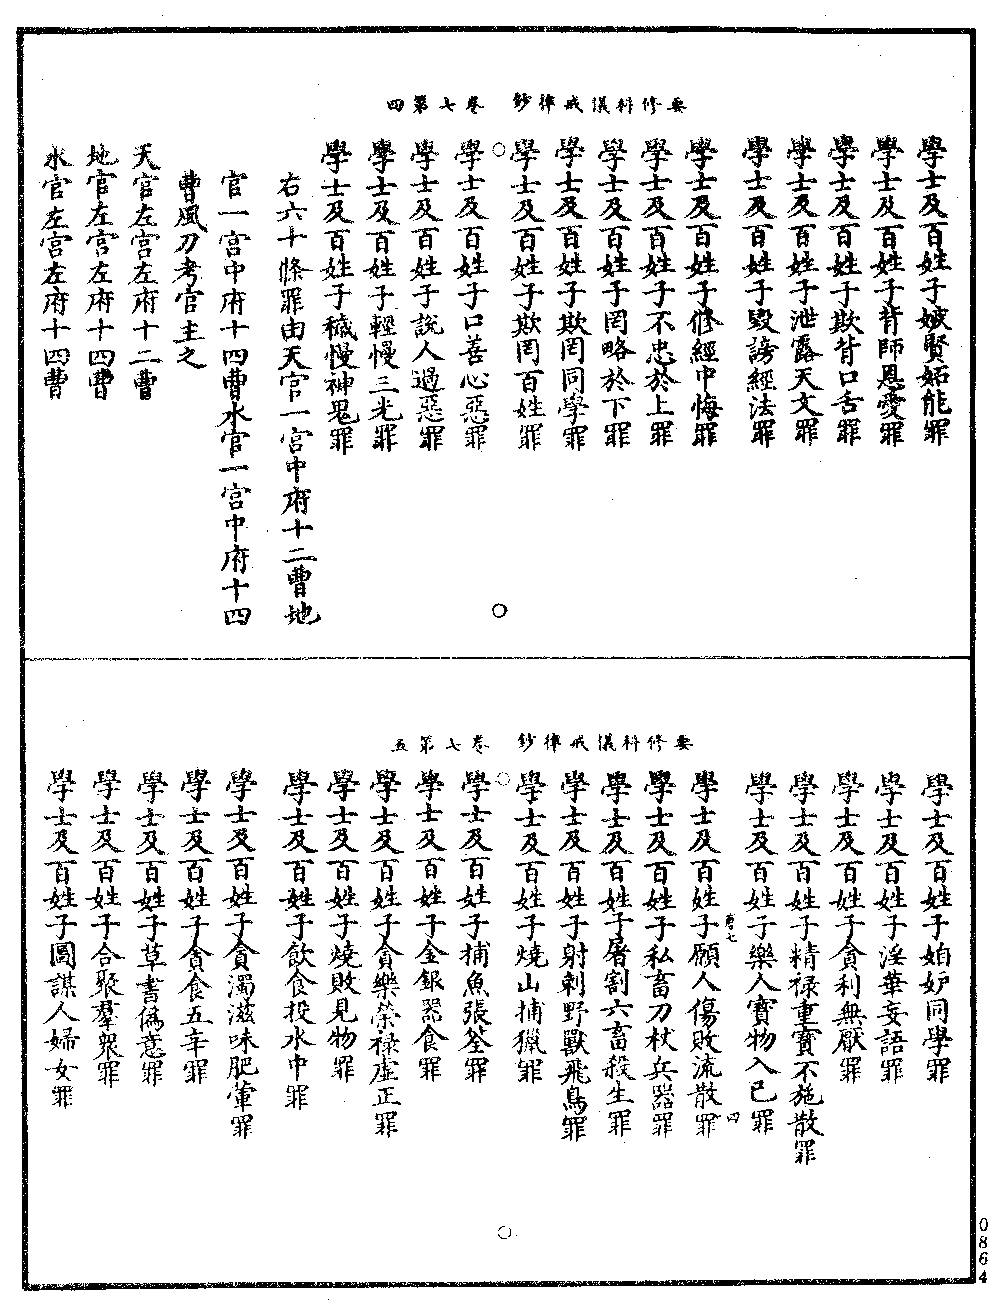 要修科儀戒律鈔 卷七第四
學士及百姓子嫉賢妬能罪
學士及百姓子背師恩愛罪
學士及百姓子欺背口舌罪
學士及百姓子泄露天文罪
學士及百姓子毀謗經法罪
學士及百姓子修經中悔罪
學士及百姓子不忠於上罪
學士及百姓子罔略於下罪
學士及百姓子欺罔同學罪
學士及百姓子欺罔百姓罪
學士及百姓子口善心惡罪
學士及百姓子說人過惡罪
學士及百姓子輕慢三光罪
學士及百姓子穢慢神鬼罪
右六十條罪由天官一宮中府十二曹地
官一宮中府十四曹水官一宮中府十四
曹風刀考官主之
天官左宮左府十二曹
地官左宮左府十四曹
水官左宮左府十四曹
要修科儀戒律鈔 卷七第五
學士及百姓子妬妒同學罪
學士及百姓子淫華妄語罪
學士及百姓子貪利無厭罪
學士及百姓子精祿重寶不施散罪
學士及百姓子樂人寶物入己罪
唐七 四
學士及百姓子願人傷敗流散罪
學士及百姓子私畜刀杖兵器罪
學士及百姓子屠割六畜殺生罪
學士及百姓子射刺野獸飛鳥罪
學士及百姓子燒山捕獵罪
學士及百姓子捕魚張筌罪
學士及百姓子金銀器食罪
學士及百姓子貪樂榮祿虛正罪
學士及百姓子燒敗見物罪
學士及百姓子飲食投水中罪
學士及百姓子貪濁滋味肥葷罪
學士及百姓子貪食五辛罪
學士及百姓子草書偽意罪
學士及百姓子合聚羣眾罪
學士及百姓子圖謀人婦女罪
0864